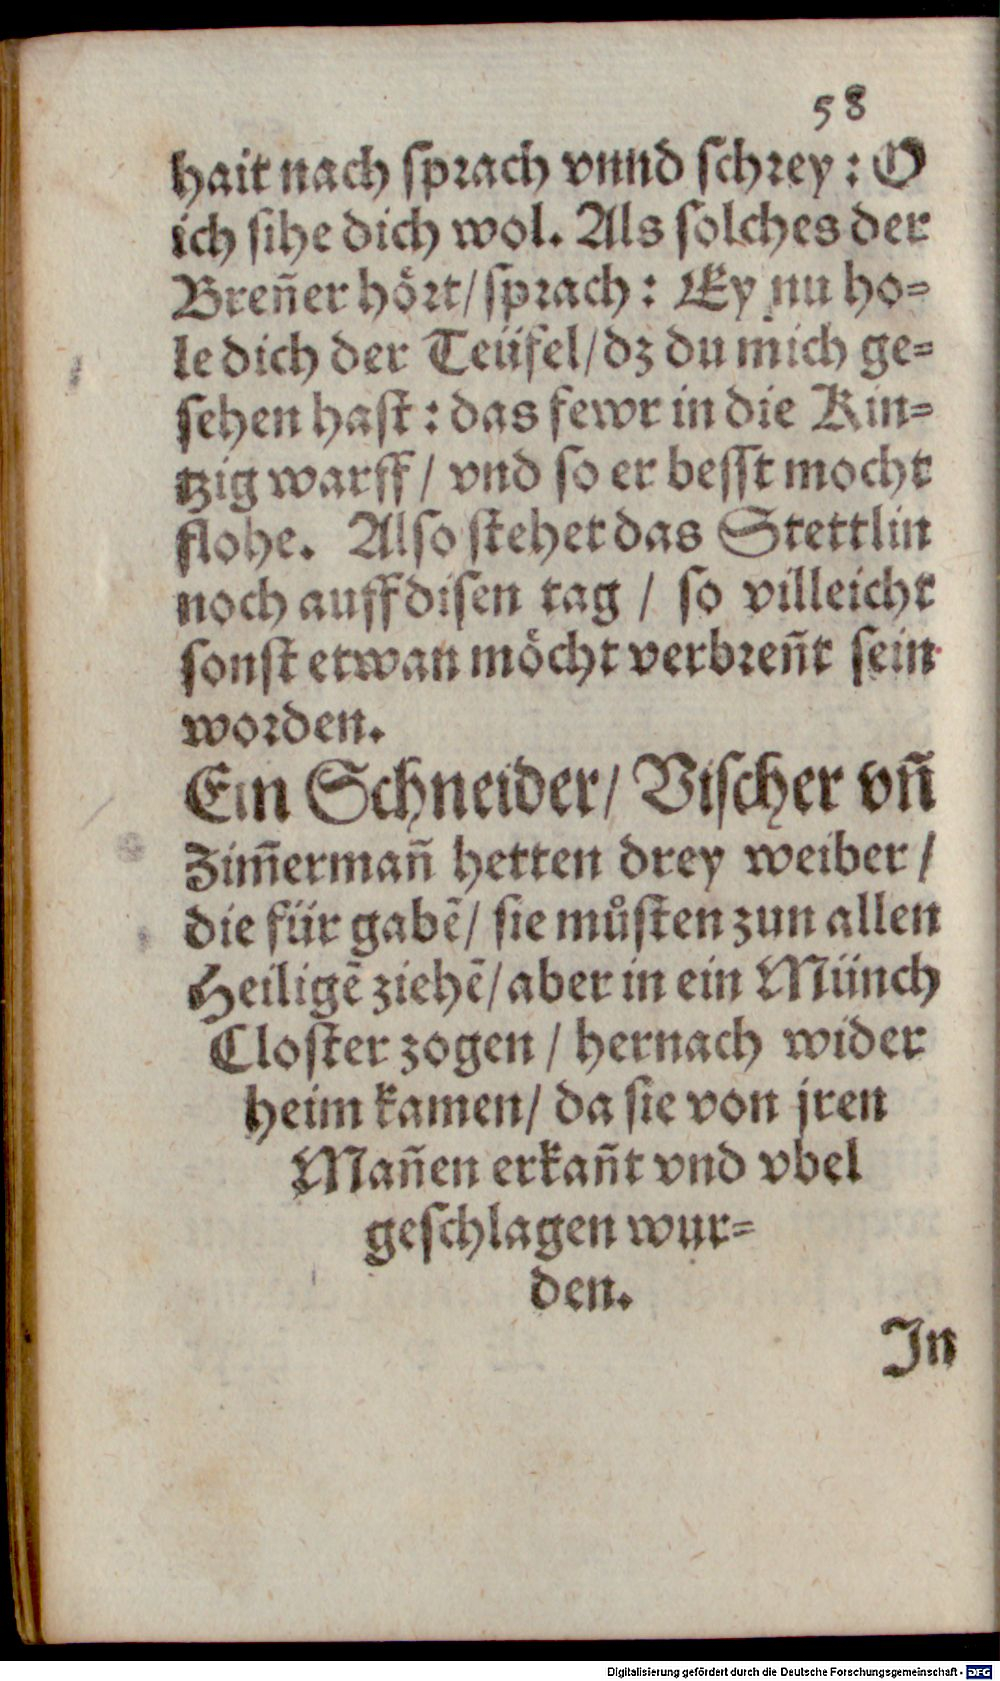 58
hait nach sprach vnnd schrey: O
ich sihe dich wol. Als solches der
Breñer hört/ sprach: Ey nu ho=
le dich der Teüfel/ dz du mich ge=
sehen hast: das fewr in die Kin=
tzig warff/ vnd so er besst mocht
flohe. Also stehet das Stettlin
noch auff disen tag / so villeicht
sonst etwan möcht verbreñt sein
worden.
Ein Schneider/ Vischer vñ
Zim̃ermañ hetten drey weiber/
die für gabẽ/ sie můsten zun allen
Heiligẽ ziehẽ/ aber in ein Münch
Closter zogen / hernach wider
heim kamen/ da sie von jren
Mañen erkañt vnd vbel
geschlagen wur=
den.
In
Digitalisierung gefördert durch die Deutsche Forschungsgemeinschaft - DFG